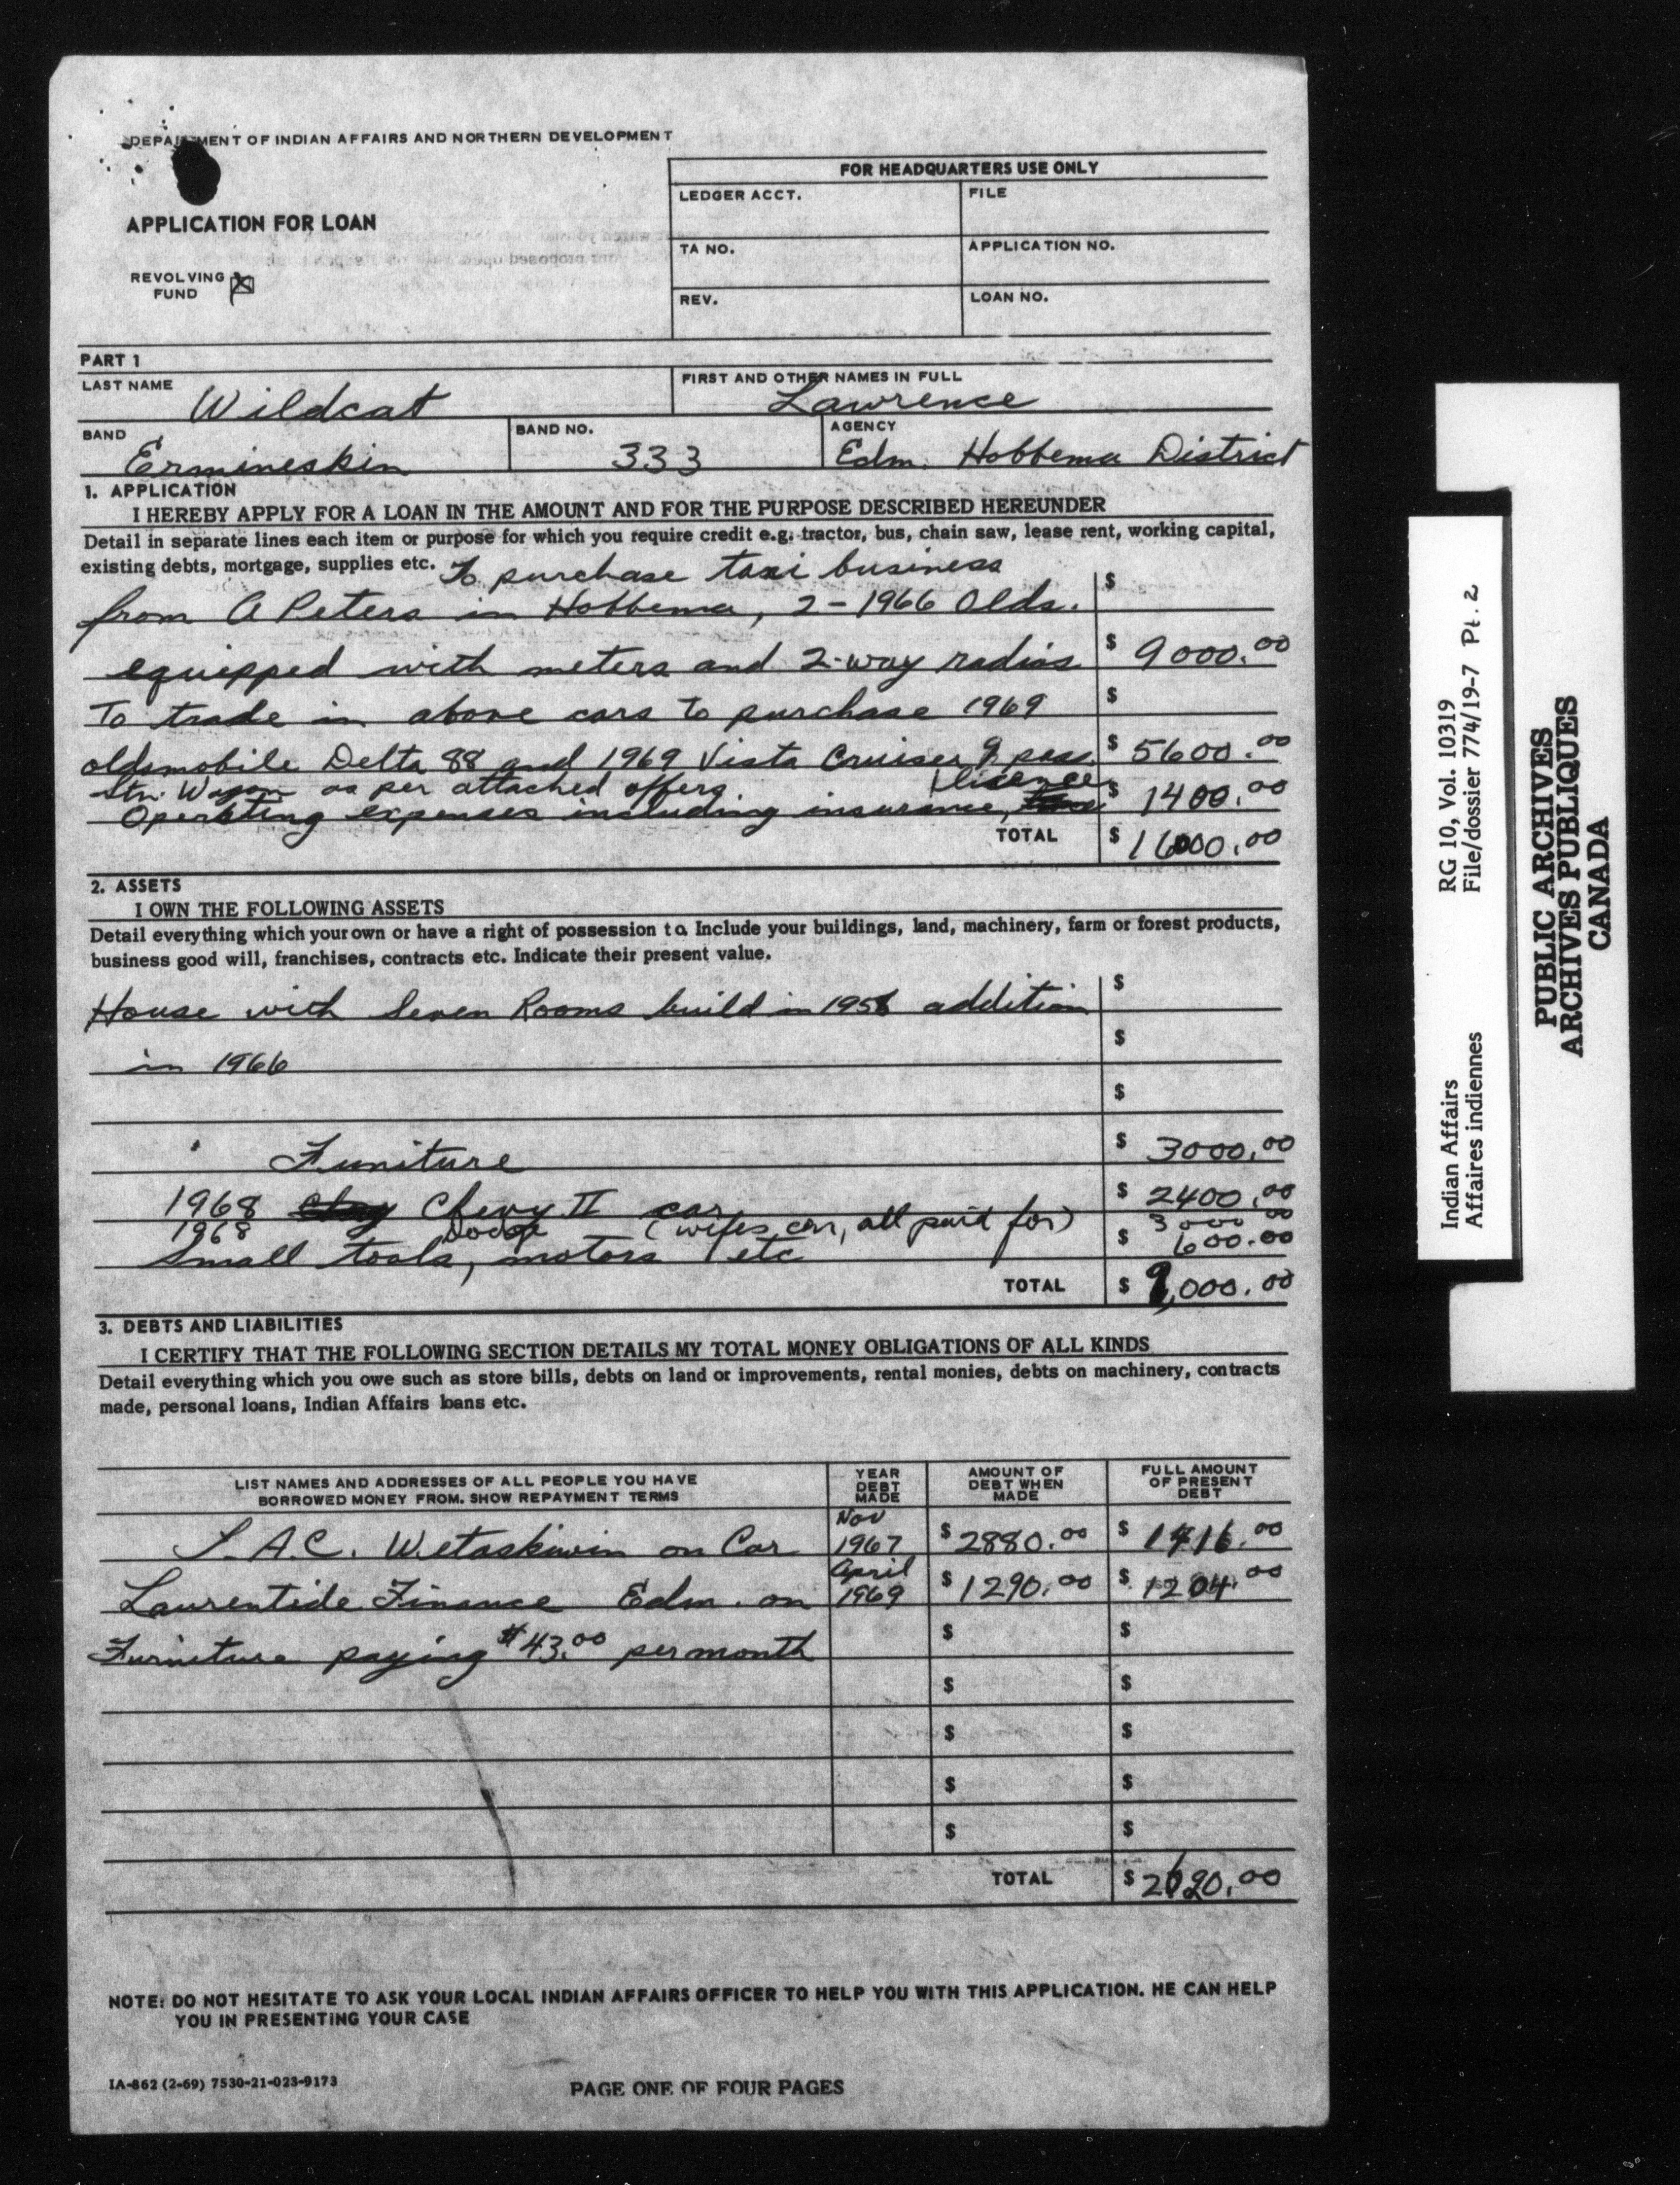 DEPARTMENT OF INDIAN AFFAIRS AND NORTHERN DEVELOPMENT
FOR HEADQUARTERS USE ONLY
LEDGER ACCT. FILE
APPLICATION FOR LOAN
TA NO. APPLICATION NO.
REVOLVING
FUND
REV. LOAN NO.
PART 1
LAST NAME Wildcat FIRST AND OTHER NAMES IN FULL Lawrence
BAND Ermineskin BAND NO. 333 AGENCY Edm. Hobbema District
1. APPLICATION
I HEREBY APPLY FOR A LOAN IN THE AMOUNT AND FOR THE PURPOSE DESCRIBED HEREUNDER
Detail in separate lines each item or purpose for which you require credit e.g. tractor, bus, chain saw, lease rent, working capital,
existing debts, mortgage, supplies etc. To purchase taxi business
from A Peters in Hobbema, 2-1966 Olds. $
equipped with meters and 2-way radios $ 9000.00
To trade in above cars to purchase 1969 $
oldsmobile Delta 88 and 1969 Vista Cruiser 9 pass. $ 5600.00
Stn. Wagon as per attached offers.
Operating expenses including insurance, licence $ 1400.00
TOTAL $ 16000.00
2. ASSETS
I OWN THE FOLLOWING ASSETS
Detail everything which your own or have a right of possession to. Include your buildings, land, machinery, farm or forest products,
business good will, franchises, contracts etc. Indicate their present value.
House with Seven Rooms build in 1956 addition $
in 1966 $
$
Funiture $ 3000.00
1968 Chevy II car $ 2400.00
1968 Dodge (wifes car, all paid for) 3000 00
Small tools, motors etc $ 600.00
TOTAL $ 9,000.00
3. DEBTS AND LIABILITIES
I CERTIFY THAT THE FOLLOWING SECTION DETAILS MY TOTAL MONEY OBLIGATIONS OF ALL KINDS
Detail everything which you owe such as store bills, debts on land or improvements, rental monies, debts on machinery, contracts
made, personal loans, Indian Affairs loans etc.
LIST NAMES AND ADDRESSES OF ALL PEOPLE YOU HAVE
BORROWED MONEY FROM. SHOW REPAYMENT TERMS
YEAR DEBT MADE
AMOUNT OF DEBT WHEN MADE
FULL AMOUNT OF PRESENT DEBT
I.A.C. Wetaskiwin on Car Nov 1967 $ 2880.00 $ 1416.00
Laurentide Finance Edm. on April 1969 $ 1290.00 $ 1204.00
Furniture paying $43.00 per month $ $
$ $
$ $
$ $
$ $
TOTAL $ 2620.00
NOTE: DO NOT HESITATE TO ASK YOUR LOCAL INDIAN AFFAIRS OFFICER TO HELP YOU WITH THIS APPLICATION. HE CAN HELP
YOU IN PRESENTING YOUR CASE
IA-862 (2-69) 7530-21-023-9173
PAGE ONE OF FOUR PAGES
Indian Affairs RG 10, Vol. 10319
Affaires indiennes File/dossier 774/19-7 Pt. 2
PUBLIC ARCHIVES
ARCHIVES PUBLIQUES
CANADA